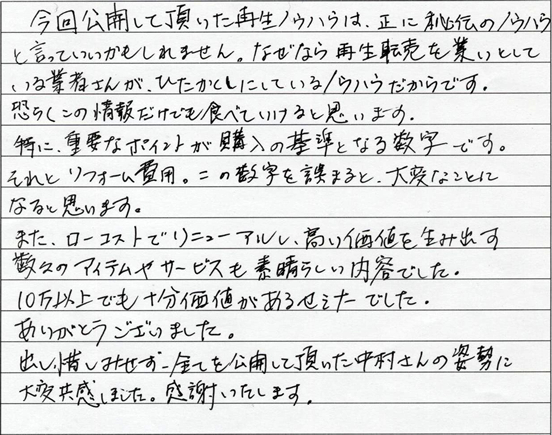 今回公開して頂いた再生ノウハウは、正に秘伝のノウハウ
と言っていいかもしれません。なぜなら再生転売を業いとして
いる業者さんが、ひたかくしにしているノウハウだからです。
恐らくこの情報だけでも食べていけると思います。
特に、重要なポイントが購入の基準となる数字です。
それとリフォーム費用。この数字を誤まると、大変なことに
なると思います。
また、ローコストでリニューアルし、高い価値を生み出す
数々のアイテムやサービスも素晴らしい内容でした。
10万以上でも十分価値があるセミナーでした。
ありがとうございました。
出し惜しみせず、全てを公開して頂いた中村さんの姿勢に
大変共感しました。感謝いたします。